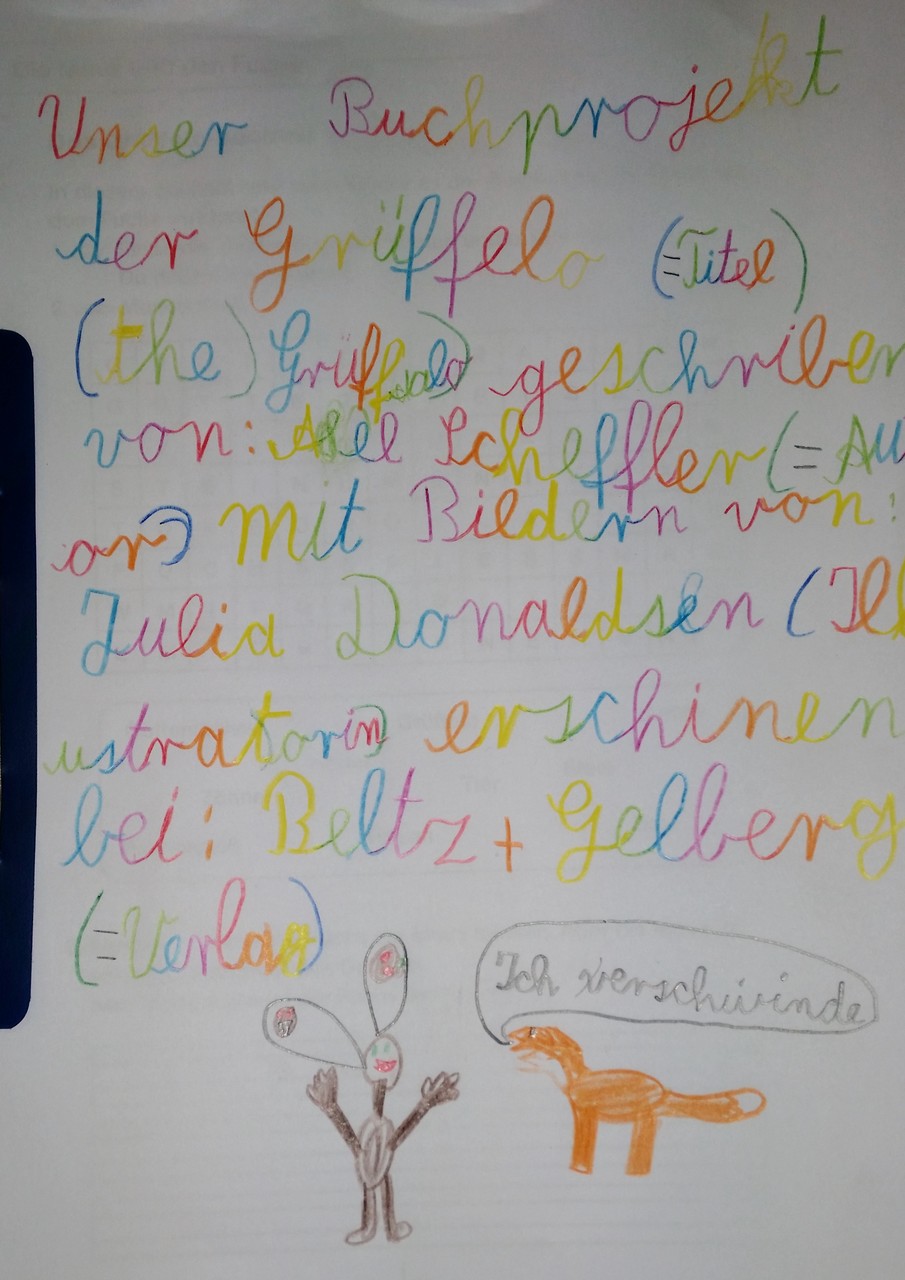 Unser Buchprojekt
der Grüffelo (=Titel)
(the) Grüffalo) geschriben
von: Axel Scheffler (= Au
or) mit Bildern von:
Julia Donaldsen (Ill
ustratorin) erschinen
bei: Beltz + Gelberg
(=Verlag)
Ich verschwinde